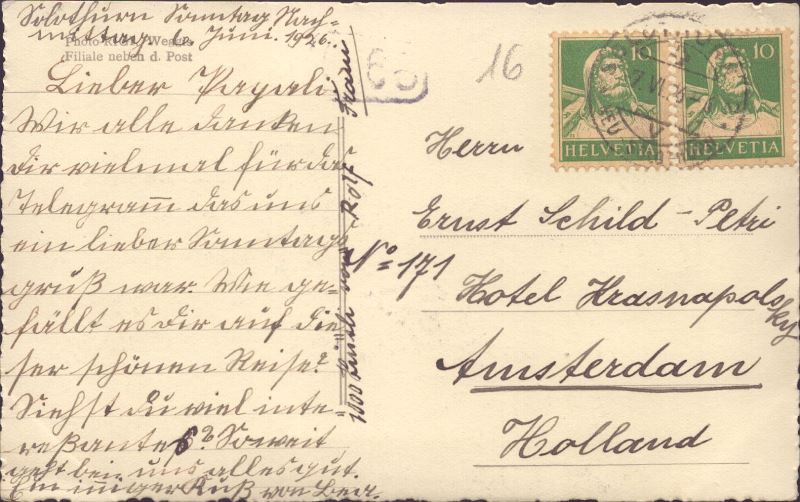 Solothurn Sonntag Nach-
mittag 6. Juni. 1926.
Filiale neben d. Post
Lieber Papali
Wir alle danken
dir vielmal für das
Telegramm das uns
ein lieber Sonntags
gruß war. Wie ge-
fällt es dir auf die
ser schönen Reise?
Siehst du viel inte-
reßantes? Soweit
geht bei uns alles gut.
Ein inniger Kuß von Bea.
von Rolf
16
10
10
HELVETIA
HELVETIA
Herrn
Ernst Schild-Petri
No 171
Hotel Krasnapolsky
Amsterdam
Holland